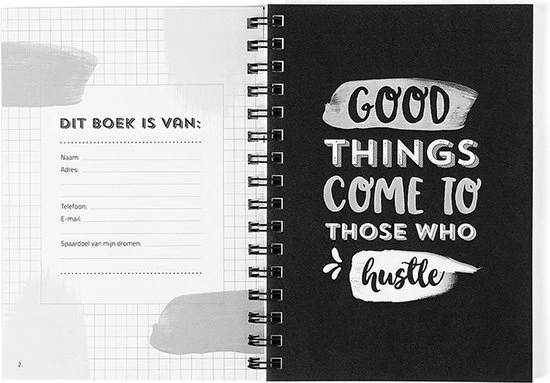 DIT BOEK IS VAN:
Naam:
Adres:
Telefoon:
E-mail:
Spaardoel van mijn dromen:
2.
GOOD
THINGS
COME TO
THOSE WHO
hustle